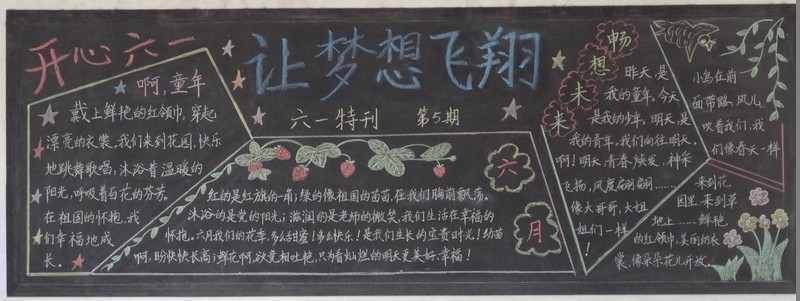 开心六一
让梦想飞翔
六一特刊 第5期
啊,童年
戴上鲜艳的红领巾,穿起
漂亮的衣裳,我们来到花园,快乐
地跳舞歌唱,沐浴着温暖的
阳光,呼吸着百花的芬芳。
在祖国的怀抱,我
们幸福地成
长。
六
月
红的是红旗的一角;绿的像祖国的苗苗,在我们胸前飘荡。
沐浴的是党的阳光;滋润的是老师的微笑,我们生活在幸福的
怀抱。六月我们的花季,多么甜蜜!多么快乐!是我们生长的宝贵时光!幼苗
啊,盼快快长高;鲜花啊,欲竞相吐艳,只为着灿烂的明天更美好、幸福!
畅
想
未
来
昨天,是
我的童年。今天
是我的少年,明天,是
我的青年,我们向往明天。
啊!明天,青春焕发,神采
飞扬,风度翩翩……
像大哥哥,大姐
姐们一样
!
小鸟在前
面带路,风儿
吹着我们,我
们像春天一样
来到花
园里,来到草
地上……鲜艳
的红领巾,美丽的衣
裳,像朵朵花儿开放。